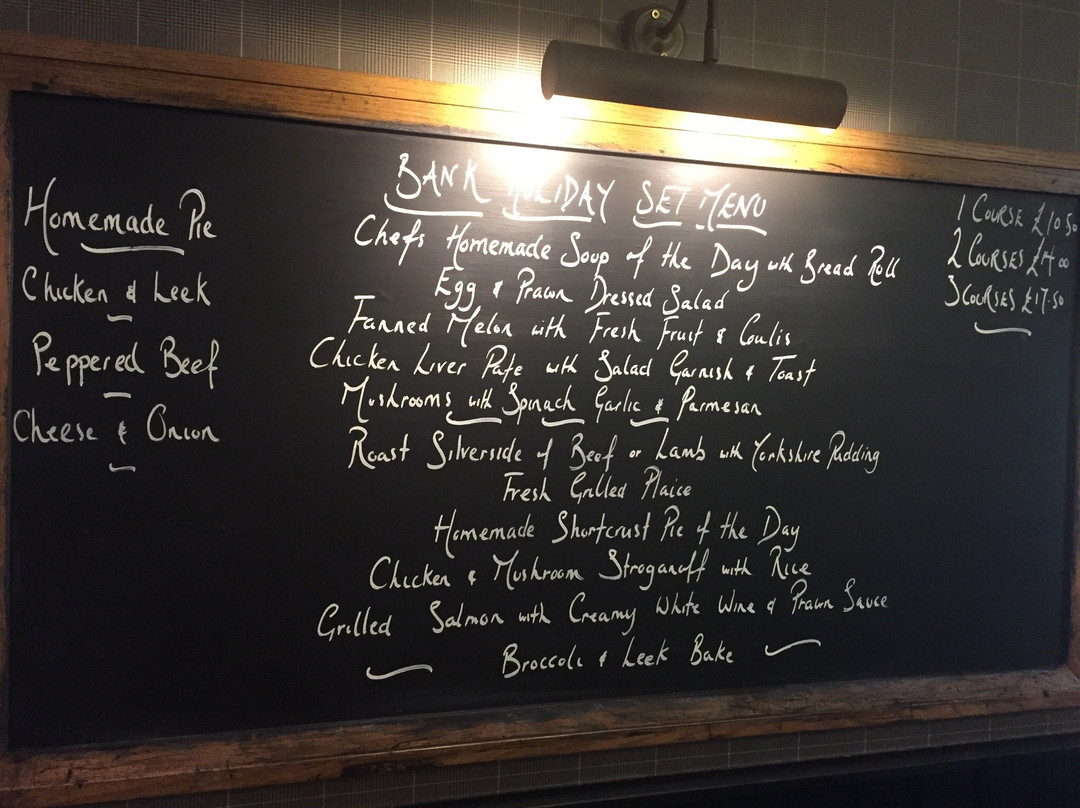 Homemade Pie
Chicken & Leek
Peppered Beef
Cheese & Onion
BANK HOLIDAY SET MENU
Chefs Homemade Soup of the Day with Bread Roll
Egg & Prawn Dressed Salad
Fanned Melon with Fresh Fruit & Coulis
Chicken Liver Pate with Salad Garnish & Toast
Mushrooms with Spinach Garlic & Parmesan
Roast Silverside of Beef or Lamb with Yorkshire Pudding
Fresh Grilled Plaice
Homemade Shortcrust Pie of the Day
Chicken & Mushroom Stroganoff with Rice
Grilled Salmon with Creamy White Wine & Prawn Sauce
Broccoli & Leek Bake
1 COURSE £10.50
2 COURSES £14.00
3 COURSES £17.50